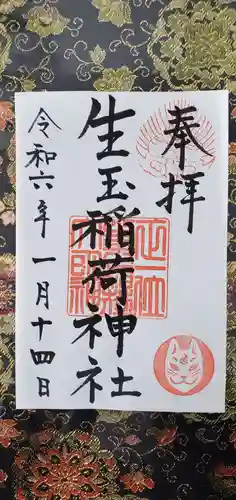 奉拝
生玉稲荷神社
令和六年一月十四日